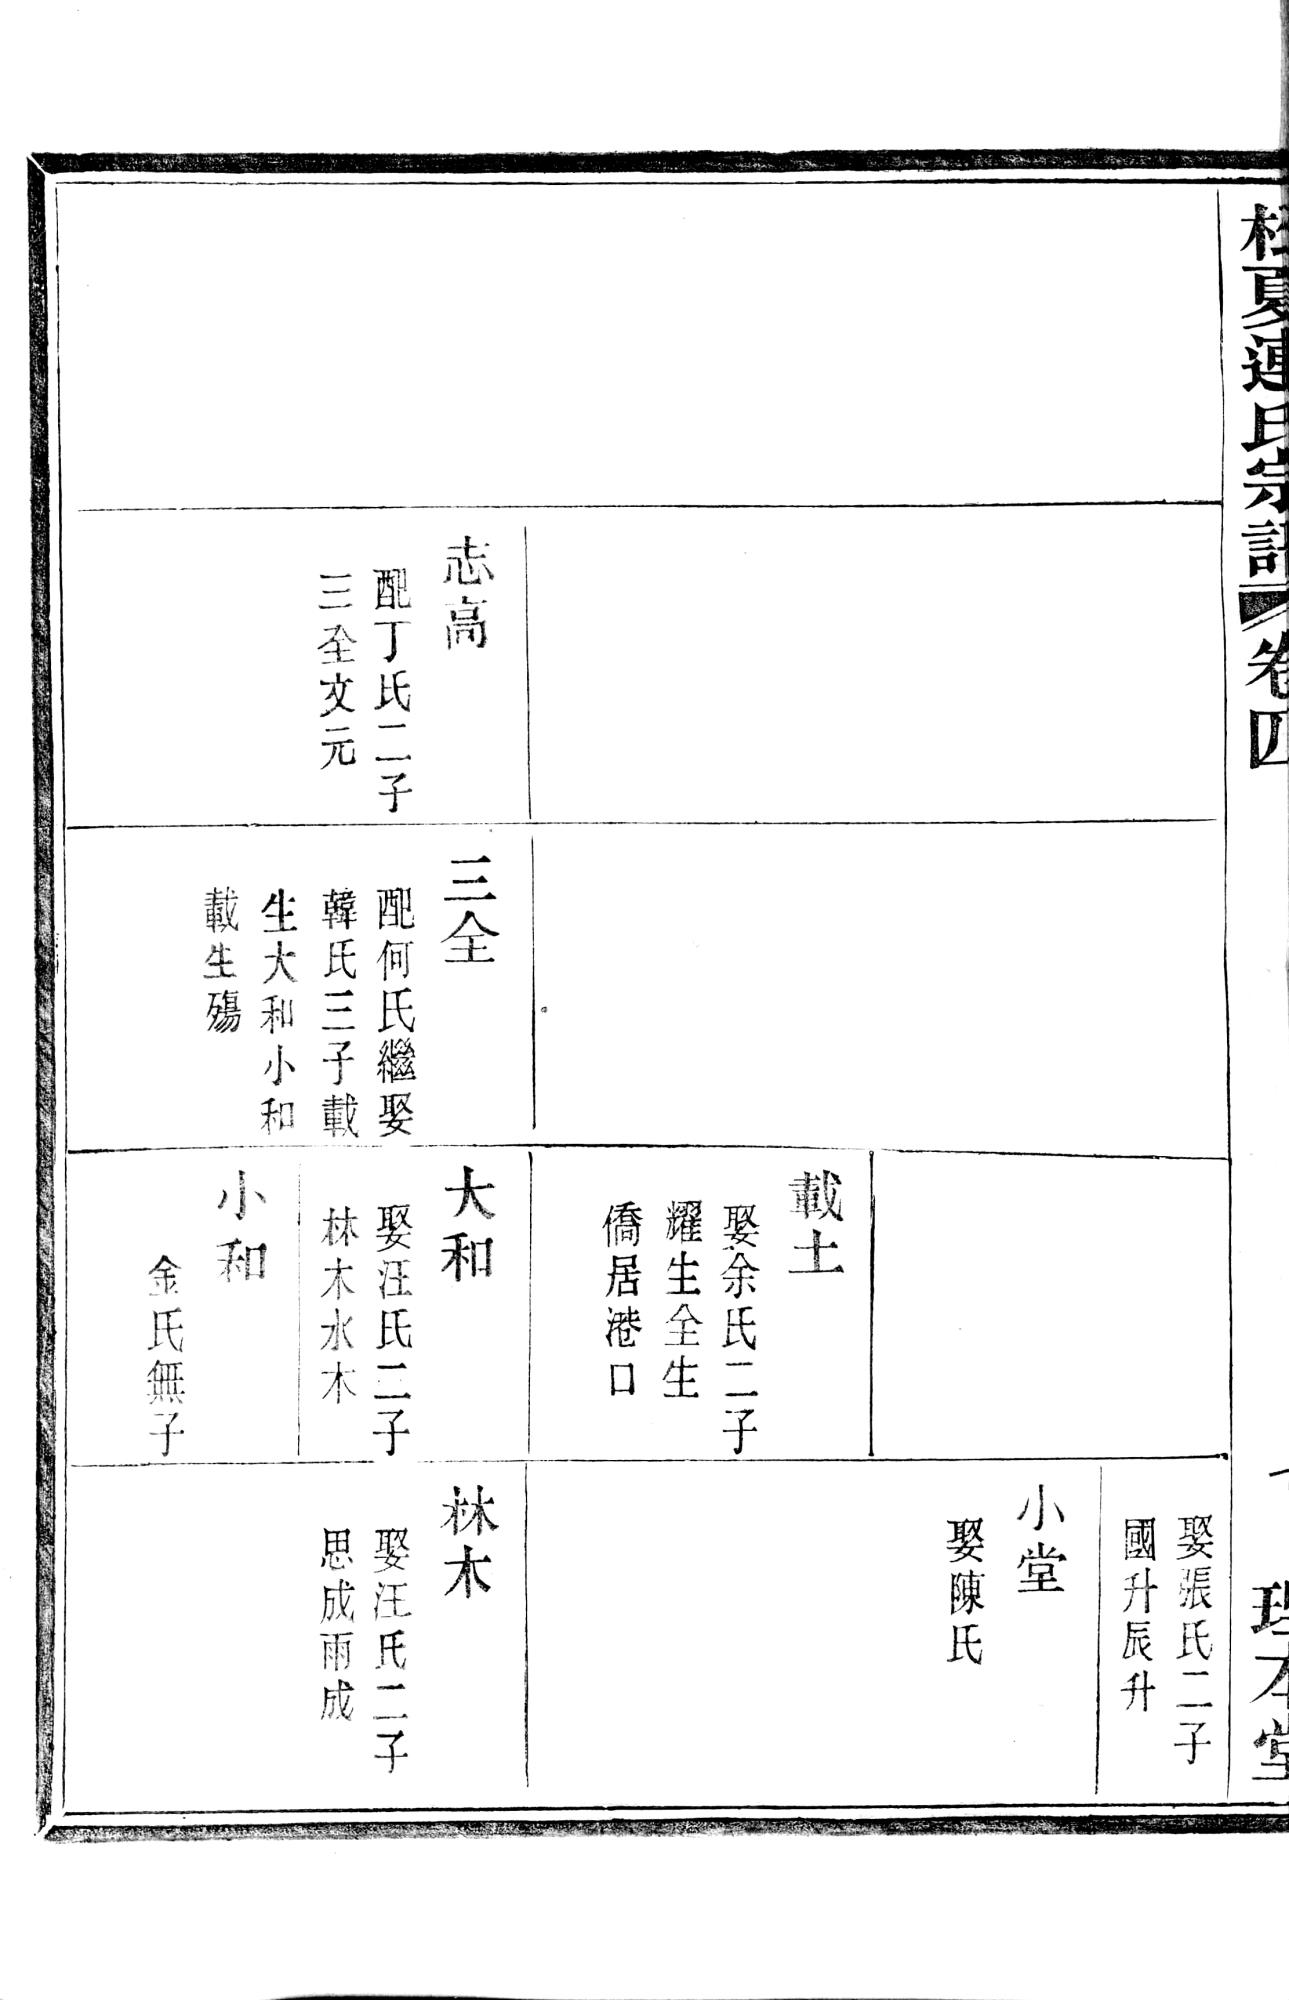 松夏連氏宗譜 卷四
理本堂
志高
配丁氏二子
三全文元
三全
配何氏繼娶
韓氏三子載
生大和小和
載生殤
載土
娶余氏二子
耀生全生
僑居港口
大和
娶汪氏二子
林木水木
小和
金氏無子
娶張氏二子
國升辰升
小堂
娶陳氏
林木
娶汪氏二子
思成雨成